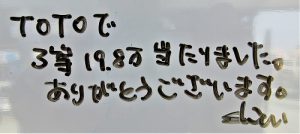 TOTOで
3等 19.8万 当たりました。
ありがとうございます。